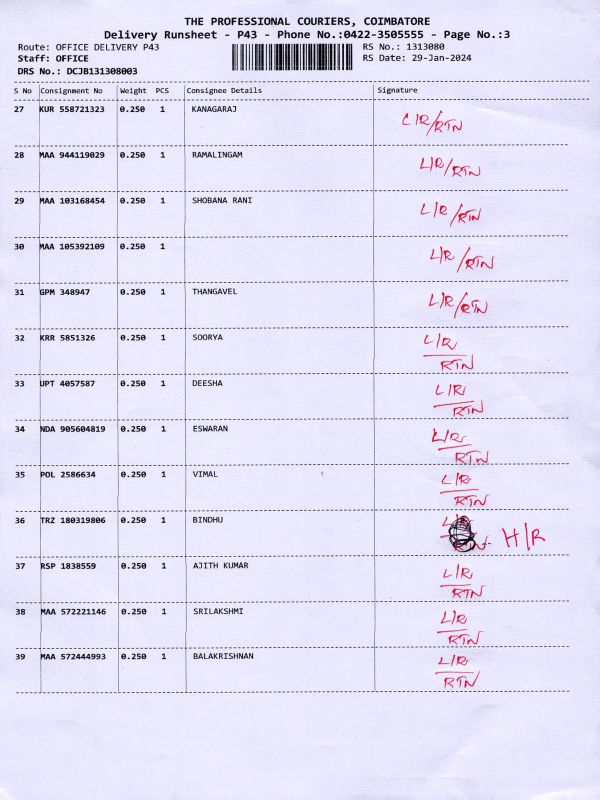 THE PROFESSIONAL COURIERS, COIMBATORE
Delivery Runsheet - P43 - Phone No.:0422-3505555 - Page No.:3
Route: OFFICE DELIVERY P43 RS No.: 1313080
Staff: OFFICE RS Date: 29-Jan-2024
DRS No.: DCJB131308003
S No Consignment No Weight PCS Consignee Details Signature
27 KUR 558721323 0.250 1 KANAGARAJ L/R/RTN
28 MAA 944119029 0.250 1 RAMALINGAM L/R/RTN
29 MAA 103168454 0.250 1 SHOBANA RANI L/R/RTN
30 MAA 105392109 0.250 1 L/R/RTN
31 GPM 348947 0.250 1 THANGAVEL L/R/RTN
32 KRR 5851326 0.250 1 SOORYA L/R
RTN
33 UPT 4057587 0.250 1 DEESHA L/R
RTN
34 NDA 905604819 0.250 1 ESWARAN L/R
RTN
35 POL 2586634 0.250 1 VIMAL L/R
RTN
36 TRZ 180319806 0.250 1 BINDHU H/R
37 RSP 1838559 0.250 1 AJITH KUMAR L/R
RTN
38 MAA 572221146 0.250 1 SRILAKSHMI L/R
RTN
39 MAA 572444993 0.250 1 BALAKRISHNAN L/R
RTN